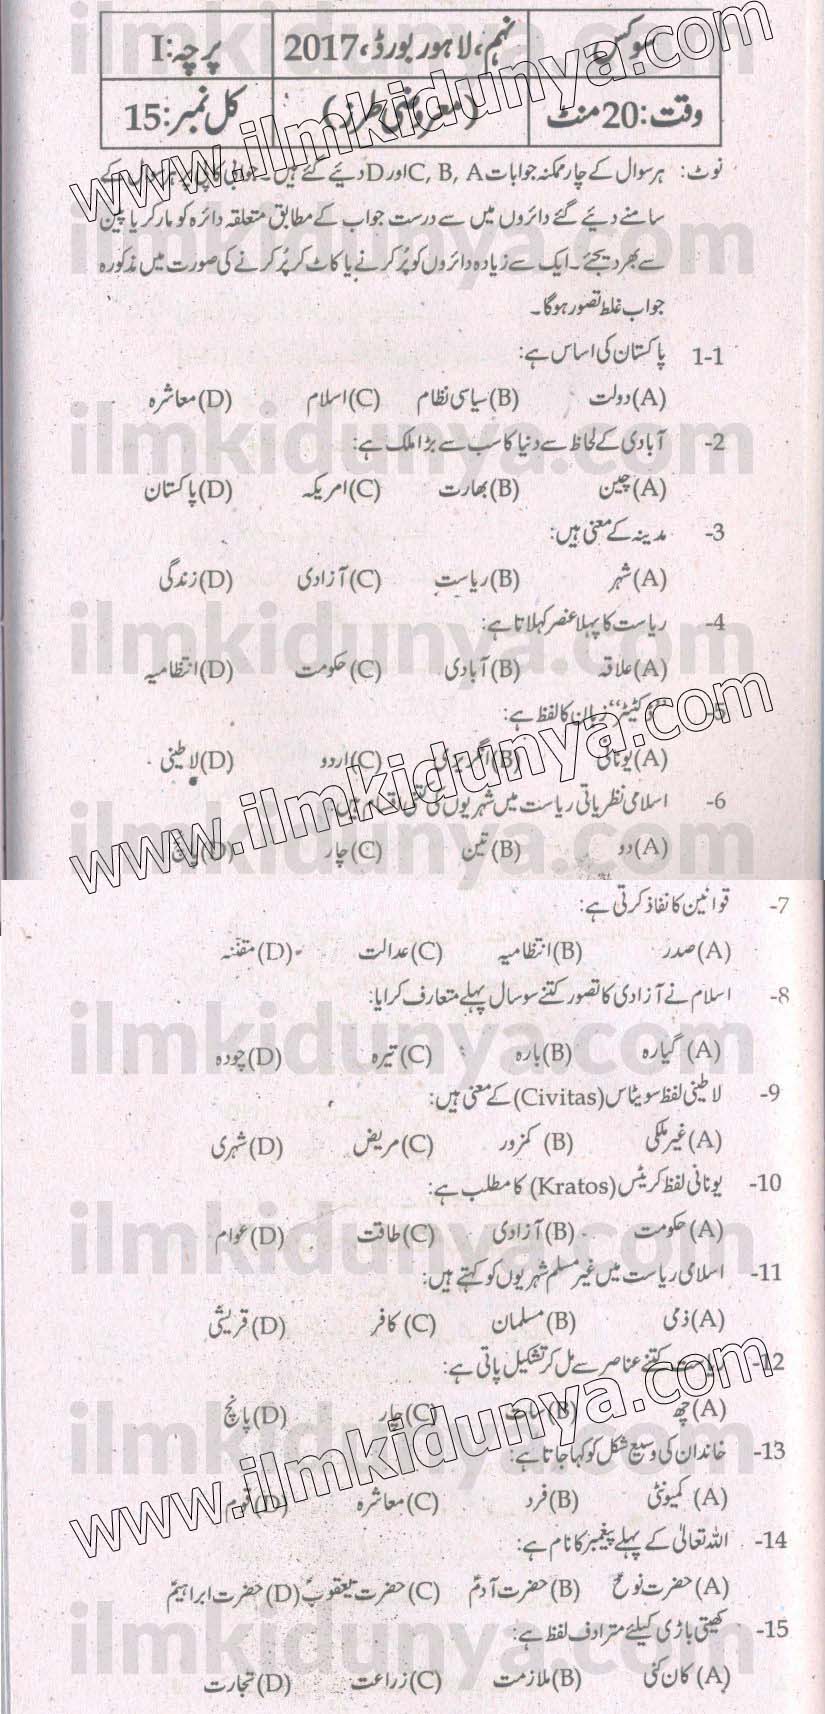 سوکس
نہم، لاہور بورڈ، 2017
پرچہ: I
وقت: 20 منٹ
(معروضی طرز)
کل نمبر: 15
نوٹ: ہر سوال کے چار ممکنہ جوابات C, B, A اور D دیئے گئے ہیں۔ جوابی کاپی پر ہر سوال کے
سامنے دیئے گئے دائروں میں سے درست جواب کے مطابق متعلقہ دائرہ کو مارکر یا پین
سے بھر دیجئے۔ ایک سے زیادہ دائروں کو پُر کرنے یا کاٹ کر پُر کرنے کی صورت میں مذکورہ
جواب غلط تصور ہوگا۔
1-1 پاکستان کی اساس ہے:
(A) دولت (B) سیاسی نظام (C) اسلام (D) معاشرہ
-2 آبادی کے لحاظ سے دنیا کا سب سے بڑا ملک ہے:
(A) چین (B) بھارت (C) امریکہ (D) پاکستان
-3 مدینہ کے معنی ہیں:
(A) شہر (B) ریاست (C) آزادی (D) زندگی
-4 ریاست کا پہلا عنصر کہلاتا ہے:
(A) علاقہ (B) آبادی (C) حکومت (D) انتظامیہ
-5 ’’ڈکٹیٹر‘‘ زبان کا لفظ ہے:
(A) یونانی (B) انگریزی (C) اردو (D) لاطینی
-6 اسلامی نظریاتی ریاست میں شہریوں کی کتنی اقسام ہیں:
(A) دو (B) تین (C) چار (D) پانچ
-7 قوانین کا نفاذ کرتی ہے:
(A) صدر (B) انتظامیہ (C) عدالت (D) مقننہ
-8 اسلام نے آزادی کا تصور کتنے سو سال پہلے متعارف کرایا:
(A) گیارہ (B) بارہ (C) تیرہ (D) چودہ
-9 لاطینی لفظ سویٹاس (Civitas) کے معنی ہیں:
(A) غیر ملکی (B) کمزور (C) مریض (D) شہری
-10 یونانی لفظ کریٹس (Kratos) کا مطلب ہے:
(A) حکومت (B) آزادی (C) طاقت (D) عوام
-11 اسلامی ریاست میں غیر مسلم شہریوں کو کہتے ہیں:
(A) ذمی (B) مسلمان (C) کافر (D) قریشی
-12 ریاست کتنے عناصر سے مل کر تشکیل پاتی ہے:
(A) چھ (B) سات (C) چار (D) پانچ
-13 خاندان کی وسیع شکل کو کہا جاتا ہے:
(A) کمیونٹی (B) فرد (C) معاشرہ (D) قوم
-14 اللہ تعالیٰ کے پہلے پیغمبر کا نام ہے:
(A) حضرت نوحؑ (B) حضرت آدمؑ (C) حضرت یعقوبؑ (D) حضرت ابراہیمؑ
-15 کھیتی باڑی کیلئے مترادف لفظ ہے:
(A) کان کنی (B) ملازمت (C) زراعت (D) تجارت
www.ilmkidunya.com
www.ilmkidunya.com
www.ilmkidunya.com
ilmkidunya.com
ilmkidunya.com
ilmkidunya.com
ilmkidunya.com
ilmkidunya.com
ilmkidunya.com
ilmkidunya.com
ilmkidunya.com
ilmkidunya.com